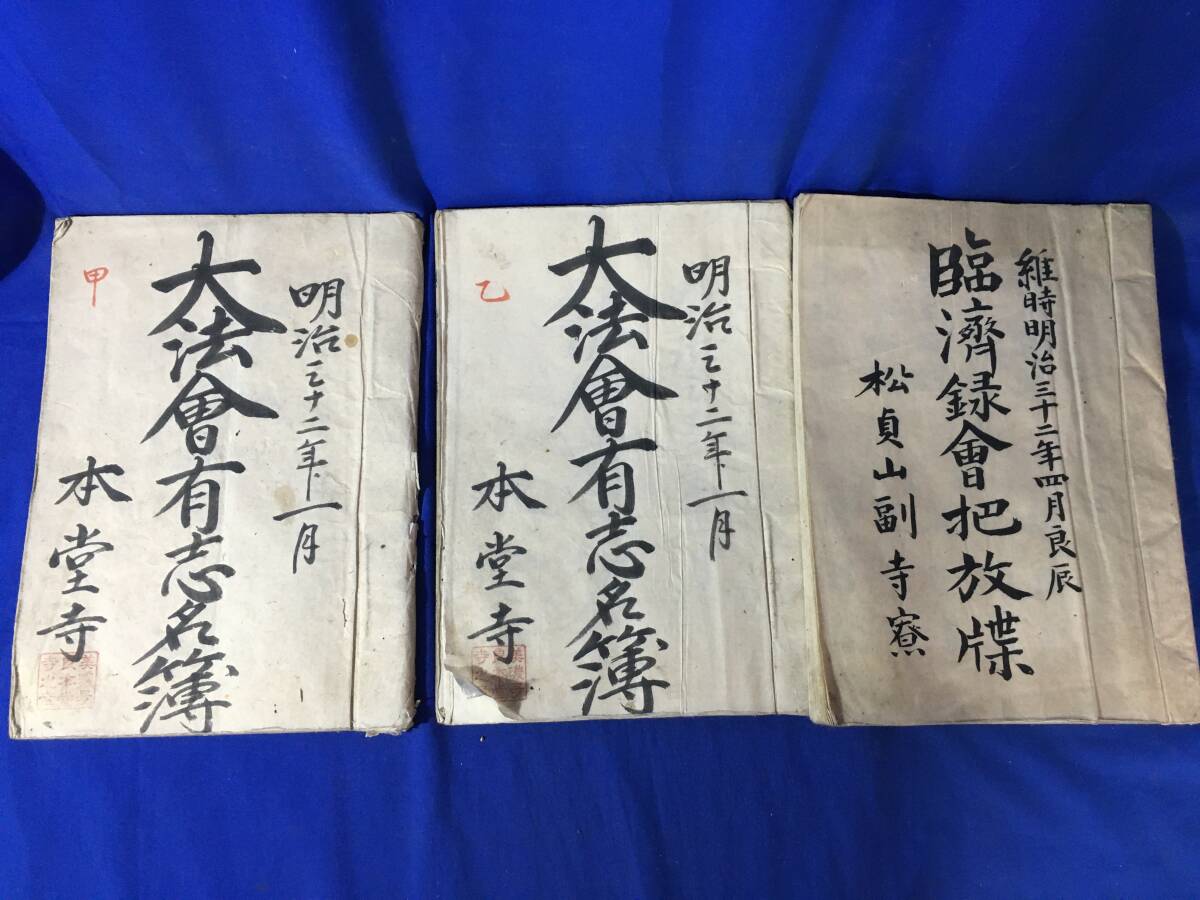 維時明治三十二年四月良辰
臨濟録會把放牒
松貞山副寺寮
明治三十二年一月
大法會有志名簿
乙
本堂寺
明治三十二年一月
大法會有志名簿
甲
本堂寺